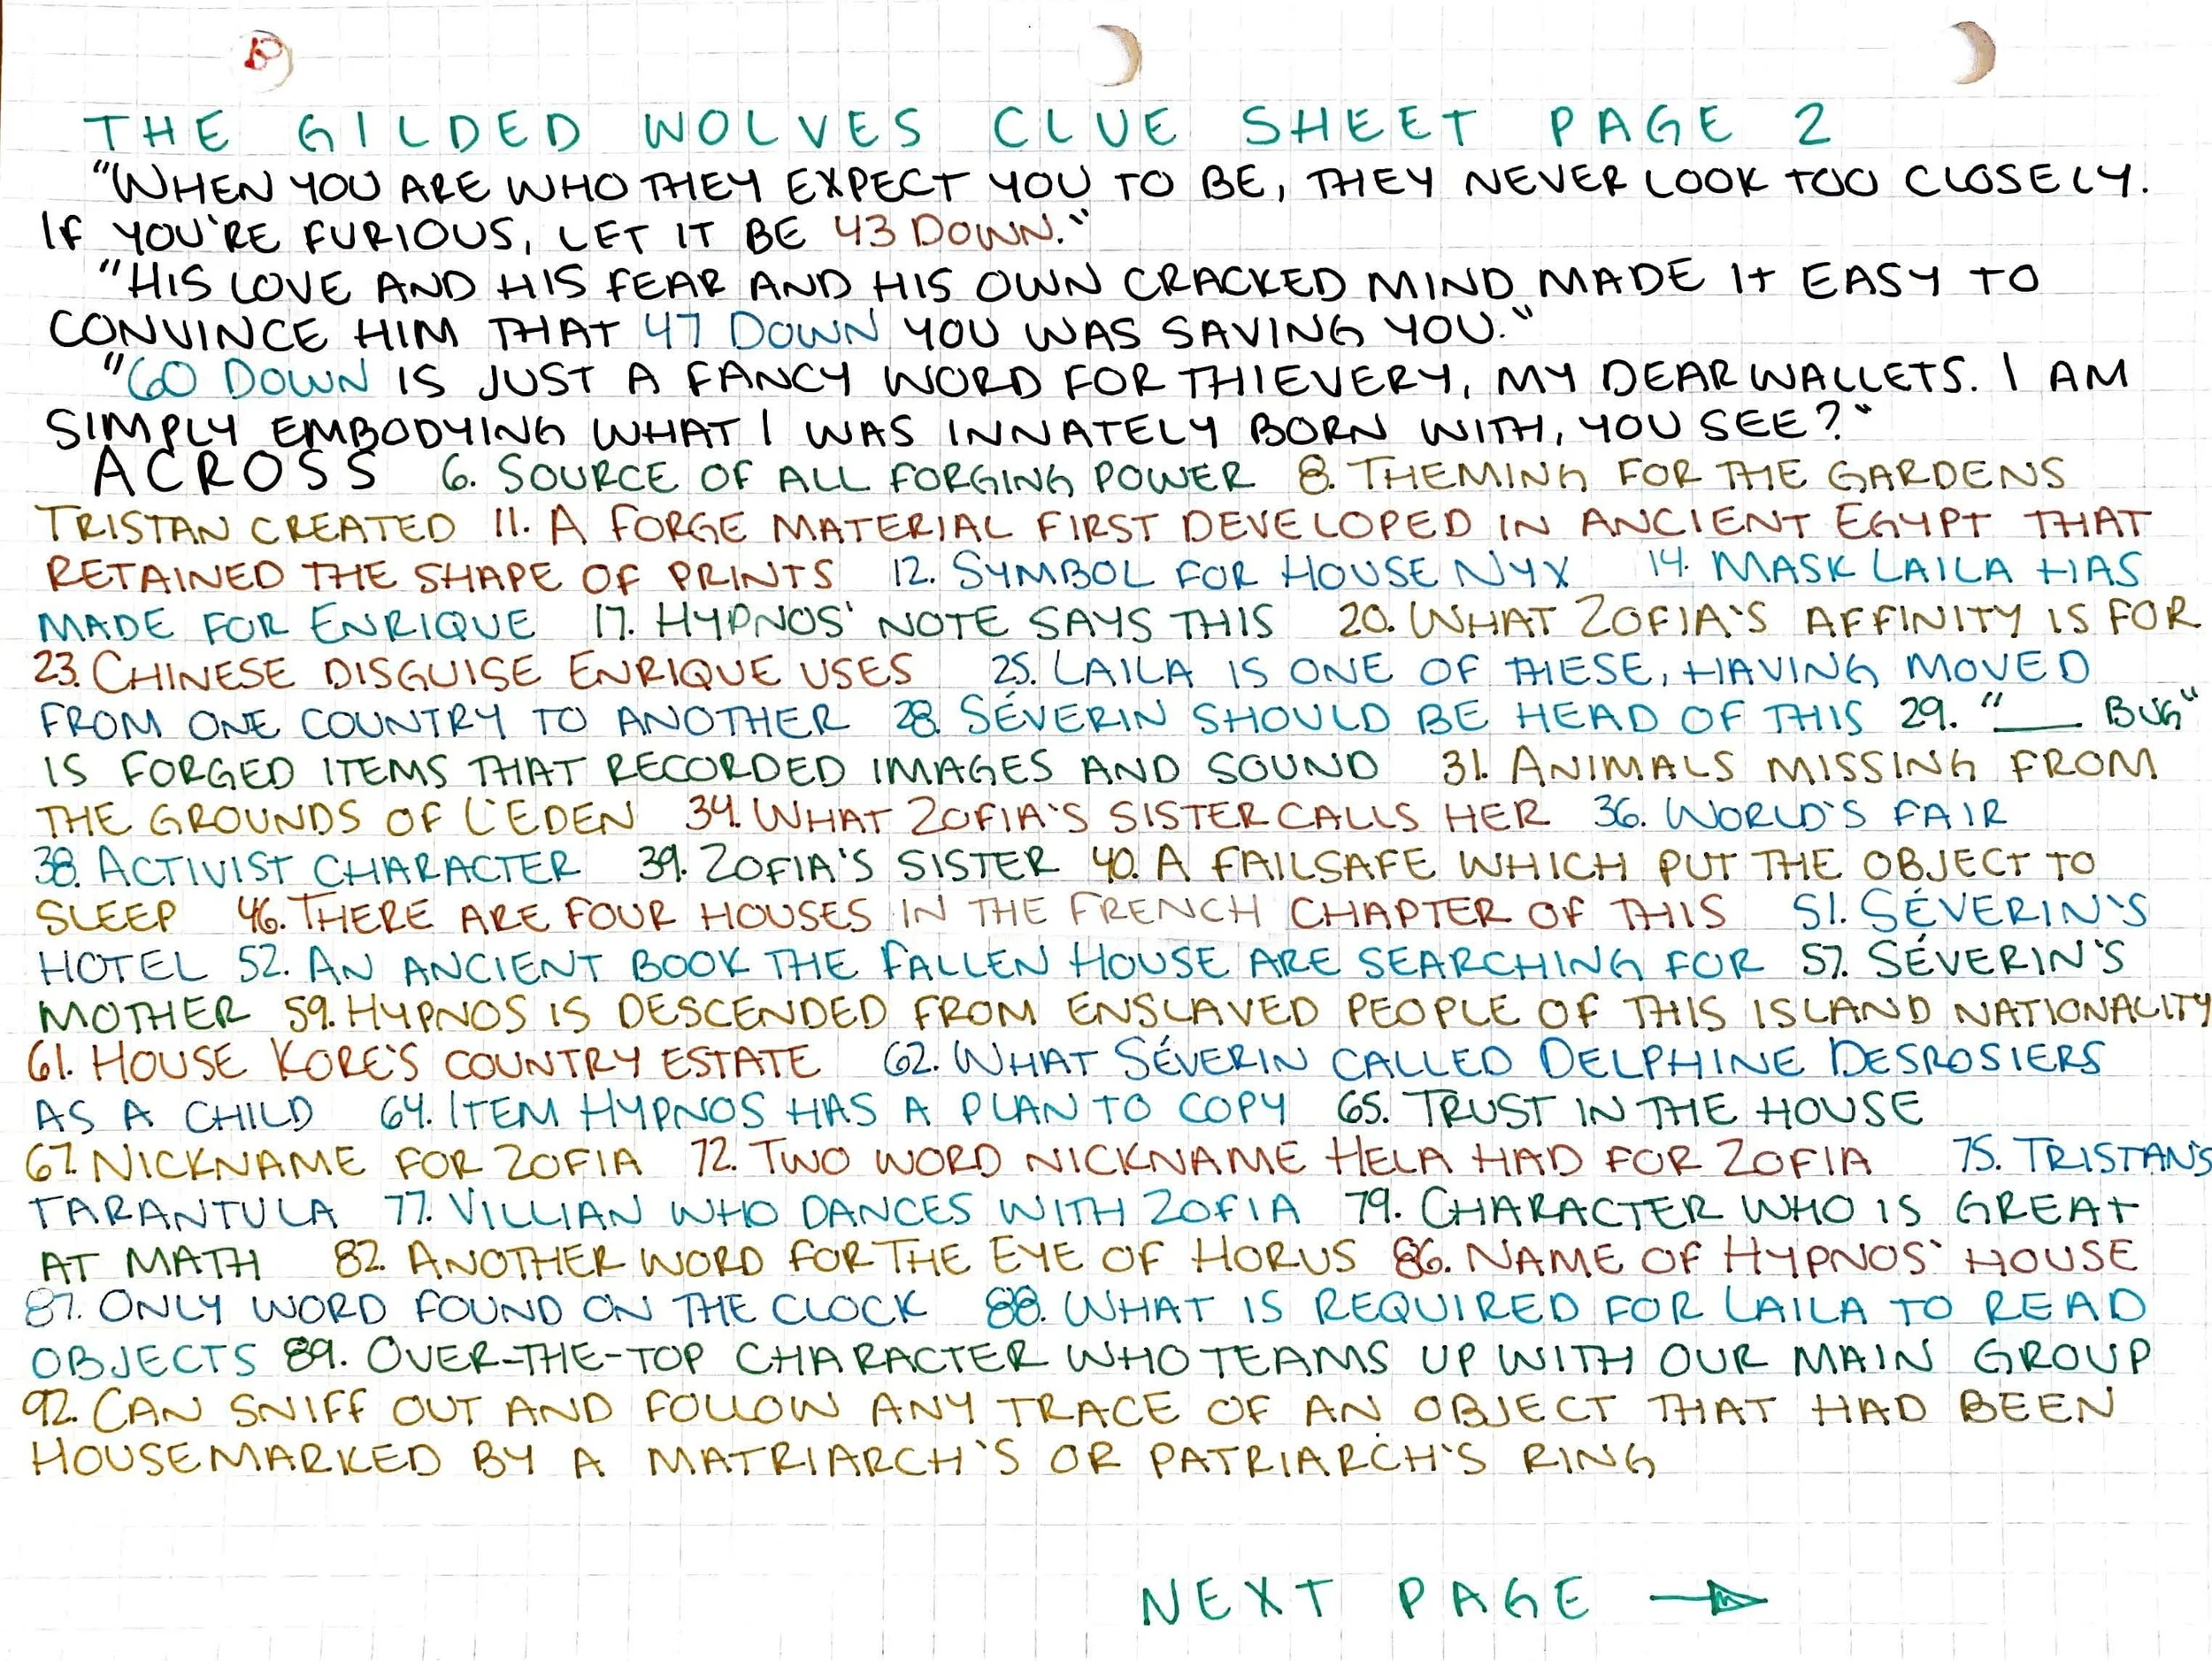 THE GILDED WOLVES CLUE SHEET PAGE 2
"WHEN YOU ARE WHO THEY EXPECT YOU TO BE, THEY NEVER LOOK TOO CLOSELY.
IF YOU'RE FURIOUS, LET IT BE 43 DOWN."
"HIS LOVE AND HIS FEAR AND HIS OWN CRACKED MIND MADE IT EASY TO
CONVINCE HIM THAT 47 DOWN YOU WAS SAVING YOU."
"60 DOWN IS JUST A FANCY WORD FOR THIEVERY, MY DEAR WALLETS. I AM
SIMPLY EMBODYING WHAT I WAS INNATELY BORN WITH, YOU SEE?"
ACROSS 6. SOURCE OF ALL FORGING POWER 8. THEMING FOR THE GARDENS
TRISTAN CREATED 11. A FORGE MATERIAL FIRST DEVELOPED IN ANCIENT EGYPT THAT
RETAINED THE SHAPE OF PRINTS 12. SYMBOL FOR HOUSE NYX 14. MASK LAILA HAS
MADE FOR ENRIQUE 17. HYPNOS' NOTE SAYS THIS 20. WHAT ZOFIA'S AFFINITY IS FOR
23. CHINESE DISGUISE ENRIQUE USES 25. LAILA IS ONE OF THESE, HAVING MOVED
FROM ONE COUNTRY TO ANOTHER 28. SÉVERIN SHOULD BE HEAD OF THIS 29. "___ BUG"
IS FORGED ITEMS THAT RECORDED IMAGES AND SOUND 31. ANIMALS MISSING FROM
THE GROUNDS OF L'EDEN 34. WHAT ZOFIA'S SISTER CALLS HER 36. WORLD'S FAIR
38. ACTIVIST CHARACTER 39. ZOFIA'S SISTER 40. A FAILSAFE WHICH PUT THE OBJECT TO
SLEEP 46. THERE ARE FOUR HOUSES IN THE FRENCH CHAPTER OF THIS 51. SÉVERIN'S
HOTEL 52. AN ANCIENT BOOK THE FALLEN HOUSE ARE SEARCHING FOR 57. SÉVERIN'S
MOTHER 59. HYPNOS IS DESCENDED FROM ENSLAVED PEOPLE OF THIS ISLAND NATIONALITY
61. HOUSE KORE'S COUNTRY ESTATE 62. WHAT SÉVERIN CALLED DELPHINE DESROSIERS
AS A CHILD 64. ITEM HYPNOS HAS A PLAN TO COPY 65. TRUST IN THE HOUSE
67. NICKNAME FOR ZOFIA 72. TWO WORD NICKNAME HELA HAD FOR ZOFIA 75. TRISTAN'S
TARANTULA 77. VILLIAN WHO DANCES WITH ZOFIA 79. CHARACTER WHO IS GREAT
AT MATH 82. ANOTHER WORD FOR THE EYE OF HORUS 86. NAME OF HYPNOS' HOUSE
87. ONLY WORD FOUND ON THE CLOCK 88. WHAT IS REQUIRED FOR LAILA TO READ
OBJECTS 89. OVER-THE-TOP CHARACTER WHO TEAMS UP WITH OUR MAIN GROUP
92. CAN SNIFF OUT AND FOLLOW ANY TRACE OF AN OBJECT THAT HAD BEEN
HOUSEMARKED BY A MATRIARCH'S OR PATRIARCH'S RING
NEXT PAGE